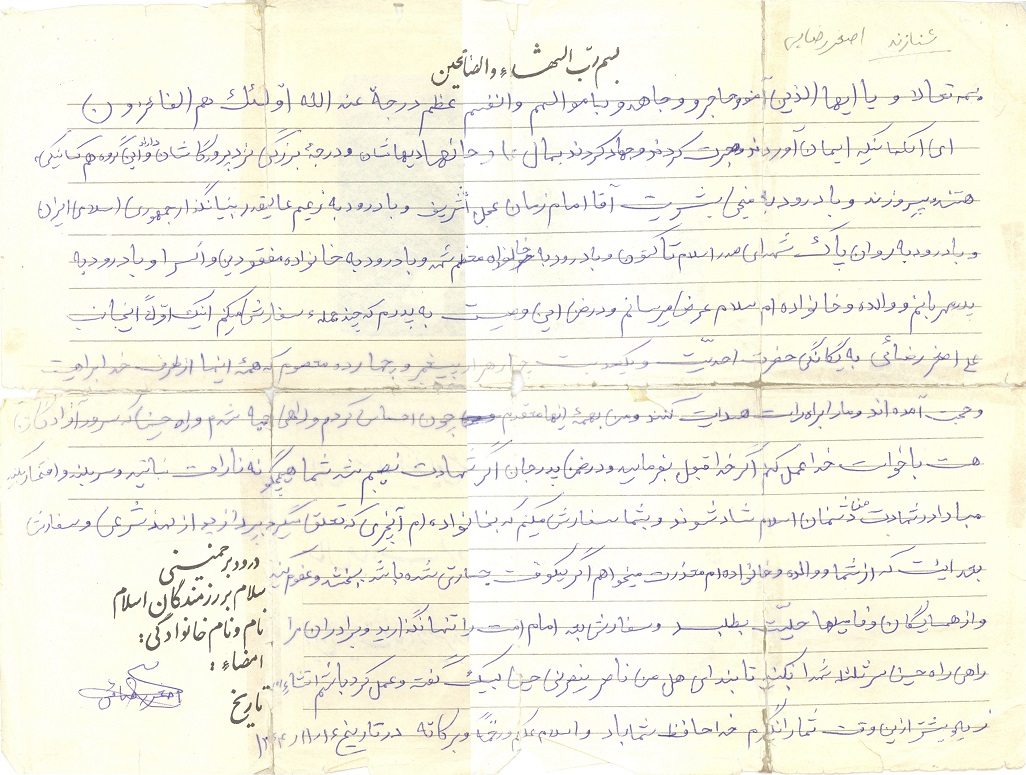 شنازند اصغر رضایی
بسم رب الشهداء والصالحین
بسمه تعالا و یا ایها الذین آمنو وهاجرو وجاهدو باموالهم وانفسهم عظم درجة عند الله اولئك هم الفائزون
ای کسانیکه ایمان آوردند وهجرت کردند وجهاد کردند بمال و جانهادیهاشان ودرجۀ بزرگی نزد پروردگاشان دارند و این گروه هم کسانیکه
هستنند پیروزند و با درود به منجی بشریت آقا امام زمان عجل الشریف و با درود به زعیم عالیقدر بنیانگذار جمهوری اسلامی ایران
و با درود به روان پاک شهدای صدر اسلام تاکنون وبا درود به خانواده معظم شهد وبا درود به خانواده مفقودین و اسرا و با درود به
پدر مهربانم و والده و خانواده ام سلام عرض میرسانم و درضمن این وصیت به پدرم که چند سفارش میکنم اینک اولاً اینجانب
علی اصغر رضائی به یگانگی حضرت احدیّت و یکصد بیست چهار هزار پیغمبر و چهارده معصوم که همۀ اینها ازطرف خدا برامت
وحجت آمده اند ومارا براه راست هدایت کنند ومن بهمۀ اینها معتقدم چون احساس کردم وراهی جبهه شدم وراه حسین که سرور آزادگان
هست باخواست خدا عمل کنم اگر خدا قبول بفرمایید ودرضمن پدرجان اگر شهادت نصیبم شد شما هیچگونه ناراحت نباشید وسربلند وافتخار بکنید
مبادا در شهادت من دشمنان اسلام شاد شوند و بشما سفارش میکنم که بخانواده ام آنچیزی که تعلق میگیرد بپردازید از نظر شرعی و سفارش
بعد اینست که از شما و والده وخانواده ام معذرت میخواهم اگر یکوقت جسارتی شده باشد ببخشید وعفوم کنید
واز همسایگان وفامیلها حلیّت بطلبید وسفارش بعد امام امت را تنها نگذارید وبرادران مرا
راهی راه حسین سرثلار شهدا بکنید تا بندای هل من ناصر ینصرنی حسین لبیک گفته وعمل کرد باشم انشاءا...
زیاد پیشتر ازین وقت شمارا نگیرم خداحافظ شما باد والسلام علیکم ورحمة وبرکاته درتاریخ ۱۳۶۴/۱۱/۱۶
درود بر خمینی
سلام بر رزمندگان اسلام
نام و نام خانوادگی:
امضاء:
تاریخ
اصغر رضائی